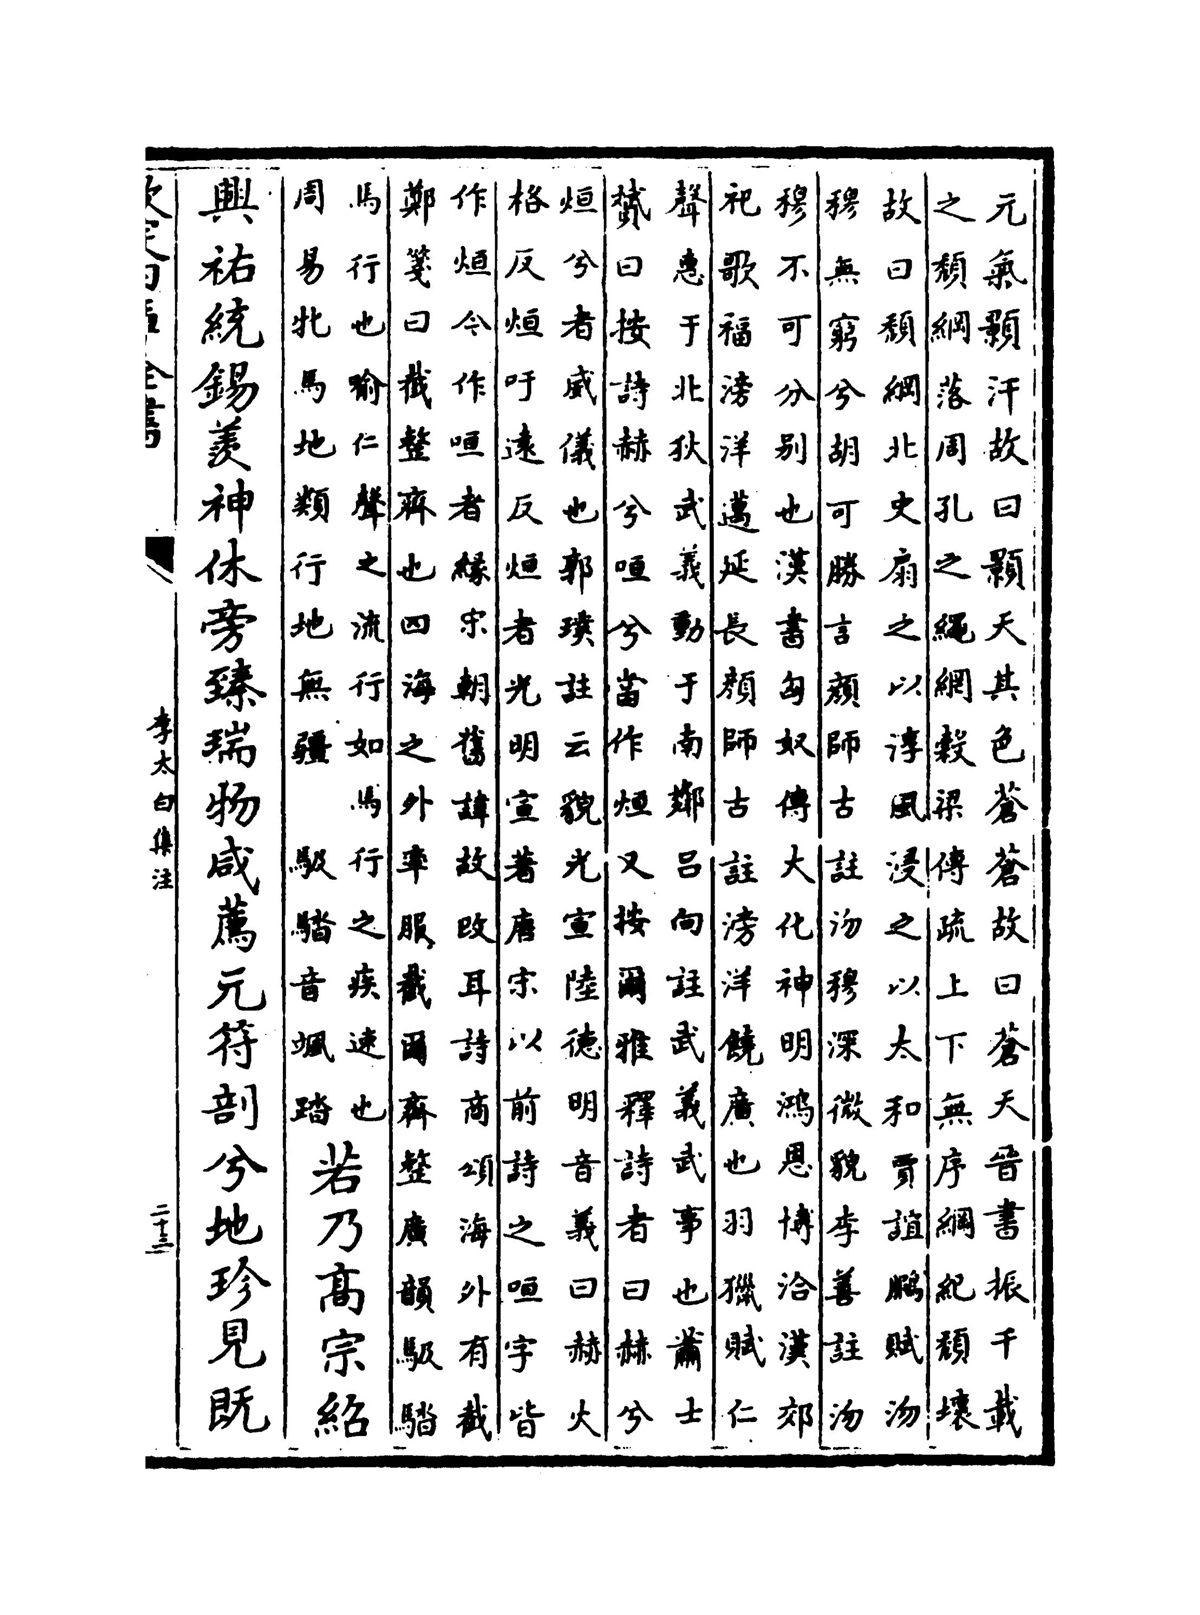 元氣顥汗故曰顥天其色蒼蒼故曰蒼天晉書振千載
之頹綱落周孔之繩網榖梁傳疏上下無序綱紀頹壊
故曰頹綱北史扇之以淳風浸之以太和賈誼鵩賦沕
穆無窮兮胡可勝言顔師古註沕穆深微貌李善註沕
穆不可分别也漢書匈奴傳大化神明鴻恩博洽漢郊
祀歌福滂洋邁延長顔師古註滂洋饒廣也羽獵賦仁
聲惠于北狄武義動于南鄰吕向註武義武事也蕭士
贇曰按詩赫兮咺兮當作烜又按爾雅釋詩者曰赫兮
烜兮者威儀也郭璞註云貌光宣陸德明音義曰赫火
格反烜吁遠反烜者光明宣著唐宋以前詩之咺字皆
作烜今作咺者縁宋朝舊諱故改耳詩商頌海外有截
鄭箋曰截整齊也四海之外率服截爾齊整廣韻馺䠡
馬行也喻仁聲之流行如馬行之疾速也
周易牝馬地類行地無疆 馺䠡音颯踏
若乃髙宗紹
興祐統錫羨神休旁臻瑞物咸薦元符剖兮地珍見既
李太白集注
二十三